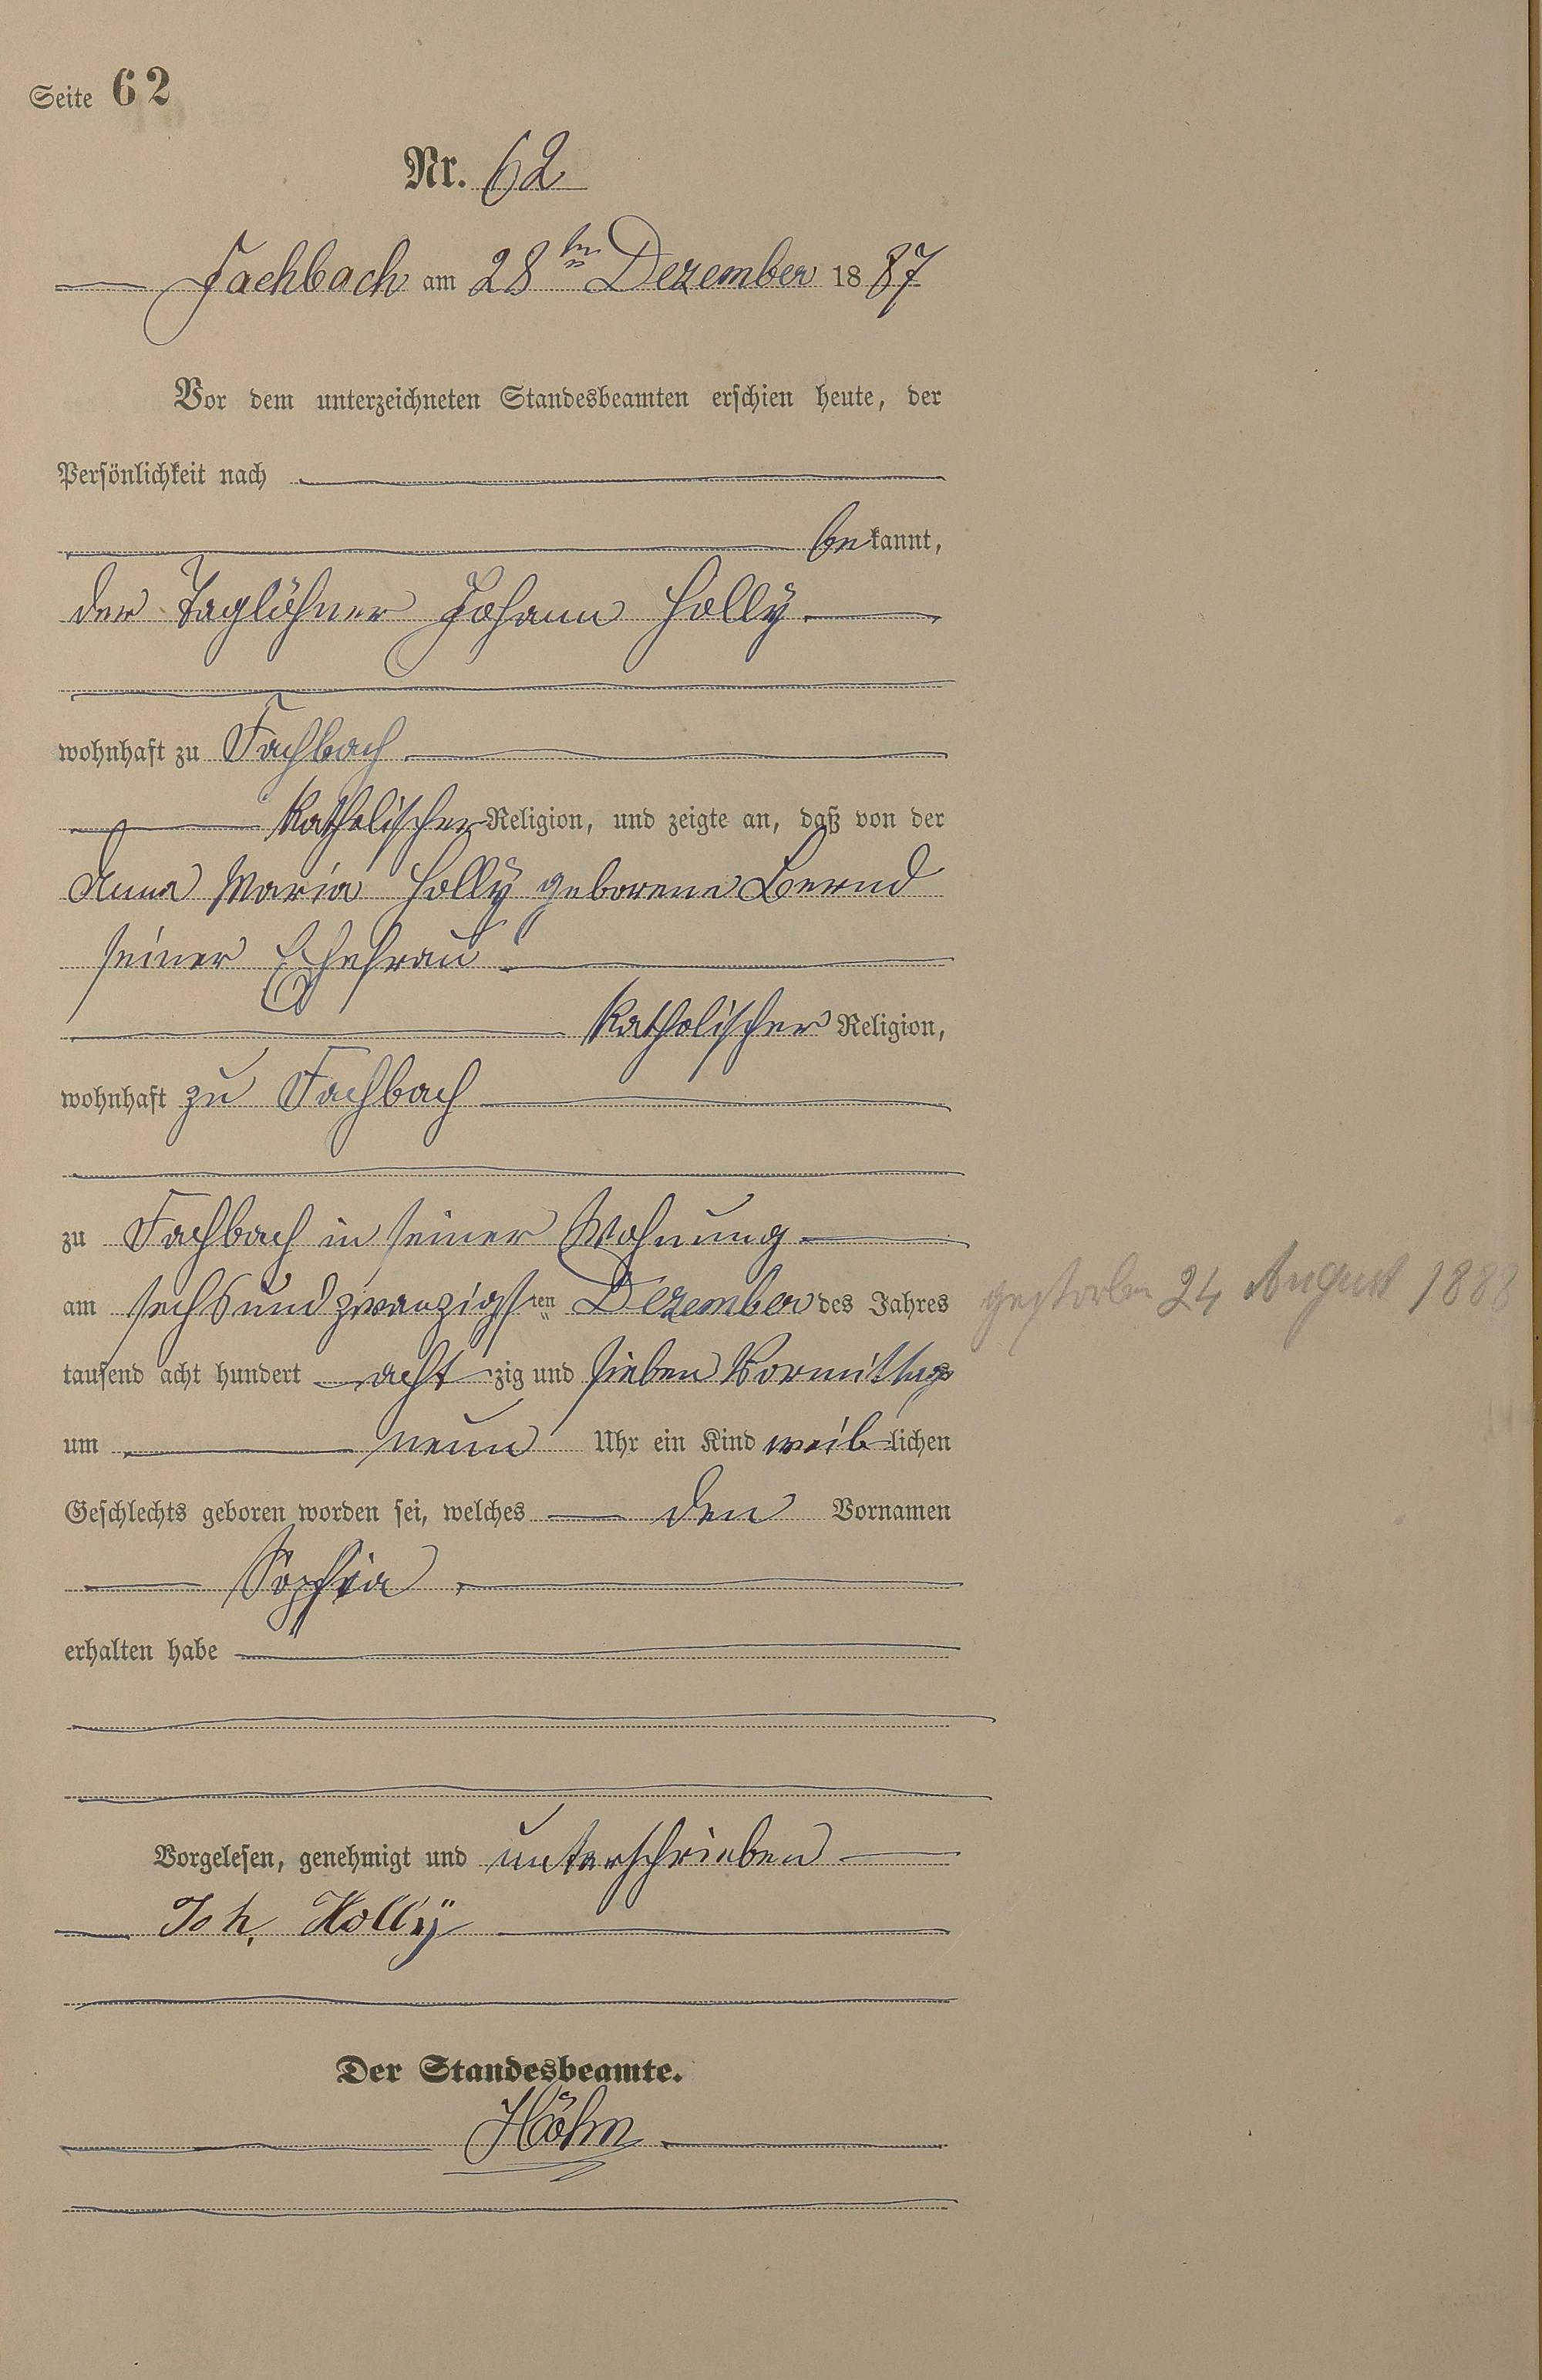 Seite 62
Nr. 62
Fachbach am 28ten Dezember 1887
Vor dem unterzeichneten Standesbeamten erschien heute, der
Persönlichkeit nach
bekannt,
der Taglöhner Johann Holly
wohnhaft zu Fachbach
katholischer Religion, und zeigte an, daß von der
Anna Maria Holly geborene Bernd
seiner Ehefrau
katholischer Religion,
wohnhaft zu Fachbach
zu Fachbach in seiner Wohnung
am sechsundzwanzigsten Dezember des Jahres
gestorben 24 August 1888
tausend acht hundert achtzig und sieben Vormittags
um neun Uhr ein Kind weiblichen
Geschlechts geboren worden sei, welches den Vornamen
Sophia
erhalten habe
Vorgelesen, genehmigt und unterschrieben
Joh, Hollÿ
Der Standesbeamte.
Höhn